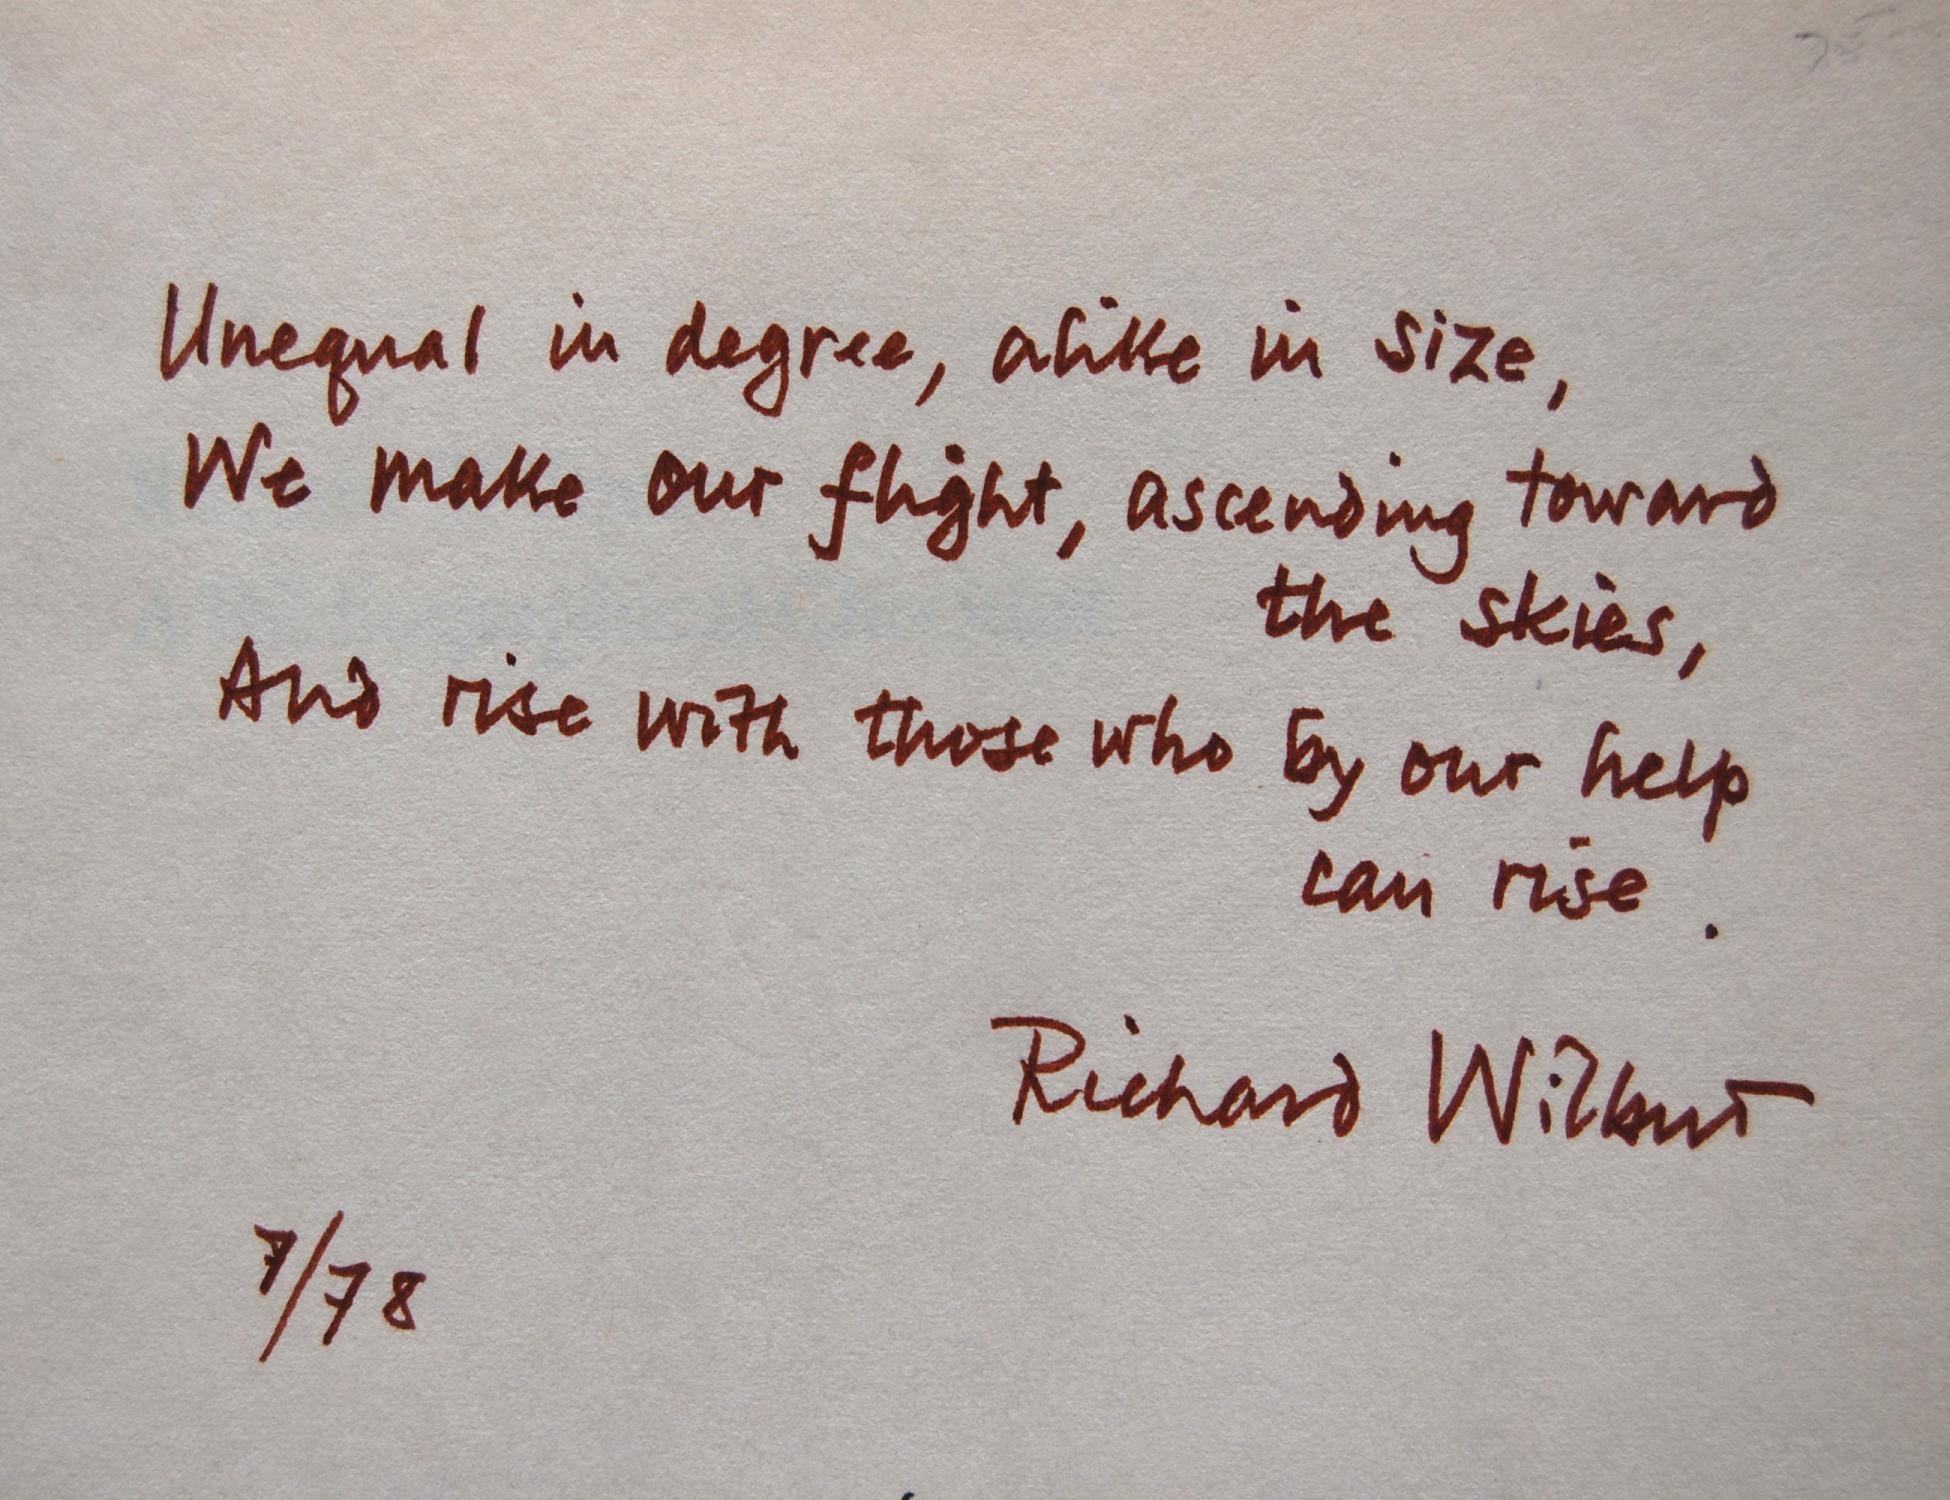 Unequal in degree, alike in size,
We make our flight, ascending toward
the skies,
And rise with those who by our help
can rise.
Richard Wilbur
7/78